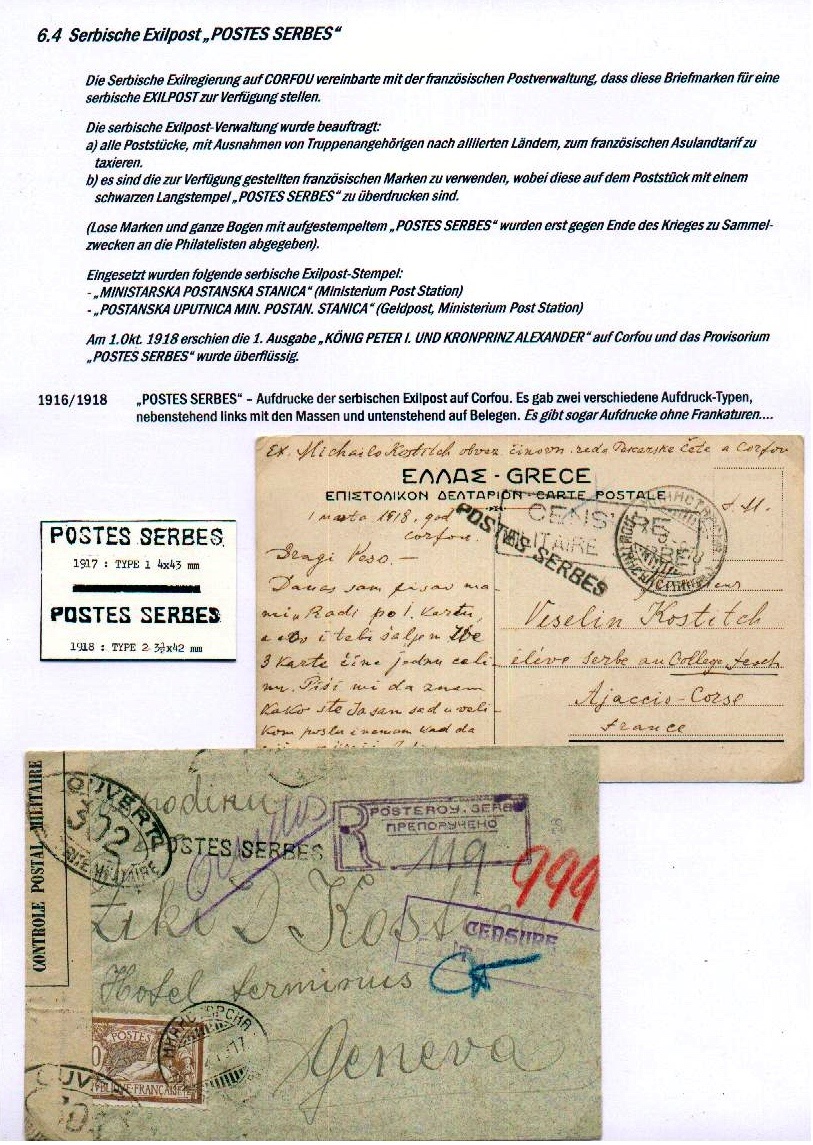 6.4 Serbische Exilpost „POSTES SERBES“
Die Serbische Exilregierung auf CORFOU vereinbarte mit der französischen Postverwaltung, dass diese Briefmarken für eine
serbische EXILPOST zur Verfügung stellen.
Die serbische Exilpost-Verwaltung wurde beauftragt:
a) alle Poststücke, mit Ausnahmen von Truppenangehörigen nach alliierten Ländern, zum französischen Asulandtarif zu
taxieren.
b) es sind die zur Verfügung gestellten französischen Marken zu verwenden, wobei diese auf dem Poststück mit einem
schwarzen Langstempel „POSTES SERBES“ zu überdrucken sind.
(Lose Marken und ganze Bogen mit aufgestempeltem „POSTES SERBES“ wurden erst gegen Ende des Krieges zu Sammel-
zwecken an die Philatelisten abgegeben).
Eingesetzt wurden folgende serbische Exilpost-Stempel:
- „MINISTARSKA POSTANSKA STANICA“ (Ministerium Post Station)
- „POSTANSKA UPUTNICA MIN. POSTAN. STANICA“ (Geldpost, Ministerium Post Station)
Am 1.Okt. 1918 erschien die 1. Ausgabe „KÖNIG PETER I. UND KRONPRINZ ALEXANDER“ auf Corfou und das Provisorium
„POSTES SERBES“ wurde überflüssig.
1916/1918 „POSTES SERBES“ – Aufdrucke der serbischen Exilpost auf Corfou. Es gab zwei verschiedene Aufdruck-Typen,
nebenstehend links mit den Massen und untenstehend auf Belegen. Es gibt sogar Aufdrucke ohne Frankaturen....
POSTES SERBES
1917 : TYPE 1 4x43 mm
POSTES SERBES
1918 : TYPE 2 3½x42 mm
Ex. Michailo Kostitch obvez. činovn. a Corfou
ΕΛΛΑΣ - GRECE
ΕΠΙΣΤΟΛΙΚΟΝ ΔΕΛΤΑΡΙΟΝ - CARTE POSTALE
1 marta 1918. god
Corfou.
CENSURE
MILITAIRE
POSTES SERBES
S. M.
Dragi Veso. —
Danas sam pisao ma-
mi, Radi po 1. kartu,
a evo i tebi šaljem
3 karte čine jednu celi-
nu. Piši mi da znam
kako ste. Ja sam sad u veli-
kom poslu i nemam kad da
Veselin Kostitch
éléve serbe au College Fesch
Ajaccio - Corse
France
CONTROLE POSTAL MILITAIRE
OUVERT
302
MILITAIRE
POSTES SERBES
R POSTE ROY. SERBE
ПРЕПОРУЧЕНО
119
999
CENSURE
Kostić
Hotel terminus
Geneva
POSTES
REPUBLIQUE FRANCAISE
OUVERT